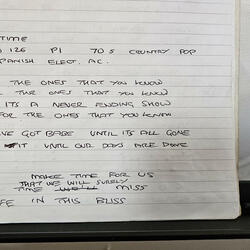 TIME
126 P1 70s COUNTRY POP
SPANISH ELECT. AC.
THE ONES THAT YOU KNOW
THE ONES THAT YOU KNOW
ITS A NEVER ENDING SHOW
FOR THE ONES THAT YOU KNOW
GOT BABE UNTIL ITS ALL GONE
IT UNTIL OUR DAYS ARE DONE
MAKE TIME FOR US
THAT WE WILL SURELY
TIME MISS
IN THIS BLISS